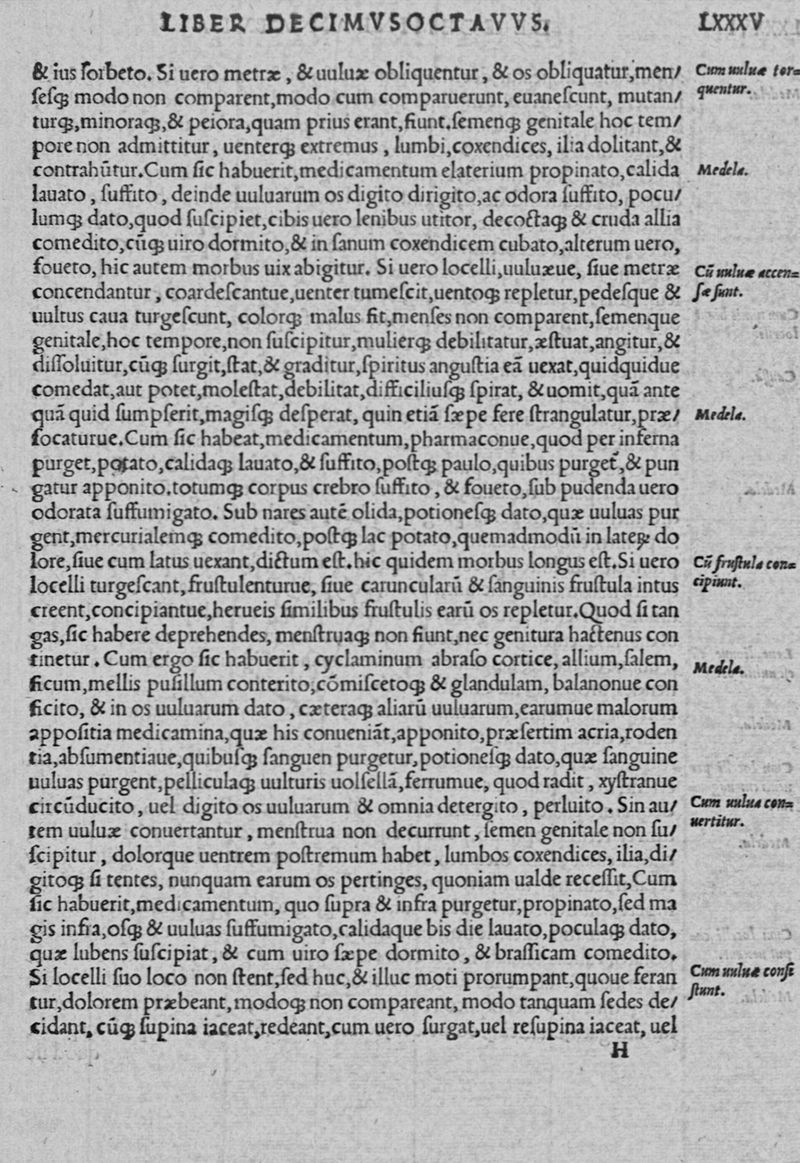 LIBER DECIMVSOCTAVVS. LXXXV
& ius ſorbeto. Si uero metræ, & uuluæ obliquentur, & os obliquatur, men/
ſeſq; modo non comparent, modo cum comparuerunt, euaneſcunt, mutan/
turq;, minoraq;, & peiora, quam prius erant, fiunt. ſemenq; genitale hoc tem/
pore non admittitur, uenterq; extremus, lumbi, coxendices, ilia dolitant, &
contrahūtur. Cum ſic habuerit, medicamentum elaterium propinato, calida
lauato, ſuffito, deinde uuluarum os digito dirigito, ac odora ſuffito, pocu/
lumq; dato, quod ſuſcipiet, cibis uero lenibus utitor, decoctaq; & cruda allia
comedito, cūq; uiro dormito, & in ſanum coxendicem cubato, alterum uero,
foueto, hic autem morbus uix abigitur. Si uero locelli, uuluæue, ſiue metræ
concendantur, coardeſcantue, uenter tumeſcit, uentoq; repletur, pedeſque &
uultus caua turgeſcunt, colorq; malus fit, menſes non comparent, ſemenque
genitale, hoc tempore, non ſuſcipitur, mulierq; debilitatur, æſtuat, angitur, &
diſſoluitur, cūq; ſurgit, ſtat, & graditur, ſpiritus anguſtia eā uexat, quidquidue
comedat, aut potet, moleſtat, debilitat, difficiliuſq; ſpirat, & uomit, quā ante
quā quid ſumpſerit, magiſq; deſperat, quin etiā ſæpe fere ſtrangulatur, præ/
focaturue. Cum ſic habeat, medicamentum, pharmaconue, quod per inferna
purget, potato, calidaq; lauato, & ſuffito, poſtq; paulo, quibus purget, & pun
gatur apponito. totumq; corpus crebro ſuffito, & foueto, ſub pudenda uero
odorata ſuffumigato. Sub nares autē olida, potioneſq; dato, quæ uuluas pur
gent, mercurialemq; comedito, poſtq; lac potato, quemadmodū in lateꝝ do
lore, ſiue cum latus uexant, dictum eſt. hic quidem morbus longus eſt. Si uero
locelli turgeſcant, fruſtulenturue, ſiue caruncularū & ſanguinis fruſtula intus
creent, concipiantue, herueis ſimilibus fruſtulis earū os repletur. Quod ſi tan
gas, ſic habere deprehendes, menſtruaq; non fiunt, nec genitura hactenus con
tinetur. Cum ergo ſic habuerit, cyclaminum abraſo cortice, allium, ſalem,
ficum, mellis puſillum conterito, cōmiſcetoq; & glandulam, balanonue con
ficito, & in os uuluarum dato, cæteraq; aliarū uuluarum, earumue malorum
appoſitia medicamina, quæ his conueniāt, apponito, præſertim acria, roden
tia, abſumentiaue, quibuſq; ſanguen purgetur, potioneſq; dato, quæ ſanguine
uuluas purgent, pelliculaq; uulturis uolſellā, ferrumue, quod radit, xyſtranue
circūducito, uel digito os uuluarum & omnia detergito, perluito. Sin au/
tem uuluæ conuertantur, menſtrua non decurrunt, ſemen genitale non ſu/
ſcipitur, dolorque uentrem poſtremum habet, lumbos coxendices, ilia, di/
gitoq; ſi tentes, nunquam earum os pertinges, quoniam ualde receſſit, Cum
ſic habuerit, medicamentum, quo ſupra & infra purgetur, propinato, ſed ma
gis infia, oſq; & uuluas ſuffumigato, calidaque bis die lauato, poculaq; dato,
quæ lubens ſuſcipiat, & cum uiro ſæpe dormito, & braſſicam comedito.
Si locelli ſuo loco non ſtent, ſed huc, & illuc moti prorumpant, quoue feran
tur, dolorem præbeant, modoq; non compareant, modo tanquam ſedes de/
cidant, cūq; ſupina iaceat, redeant, cum uero ſurgat, uel reſupina iaceat, uel
H
Cum uuluæ tor=
quentur.
Medela.
Cū uuluæ accen=
ſæ ſunt.
Medela.
Cū fruſtula con=
cipiunt.
Medela.
Cum uulua con=
uertitur.
Cum uuluæ conſi
ſtunt.